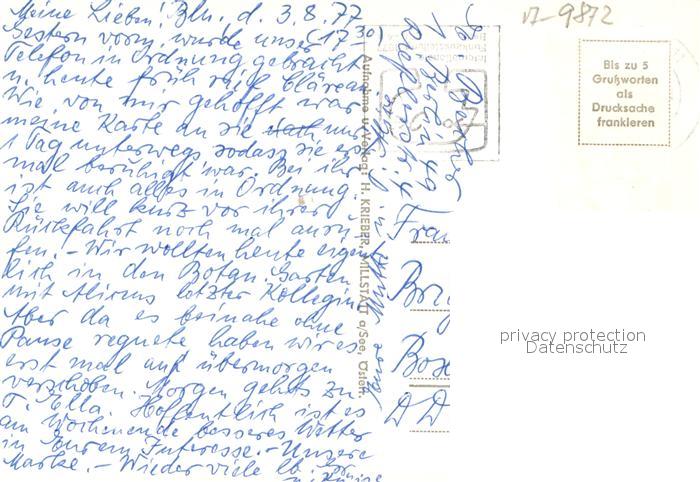 Meine Lieben! Bln. d. 3.8.77
Gestern vorm. wurde unser (17³⁰)
Telefon in Ordnung gebracht
u. heute früh rief
Wie von mir gehofft war
meine Karte an sie nur
1 Tag unterwegs sodass sie erst
mal beruhigt war. Bei ihr
ist auch alles in Ordnung.
Sie will kurz vor ihrer
Rückfahrt noch mal anru-
fen. - Wir wollten heute eigent
lich in den Botan. Garten
mit letzter Kollegin
Aber da es beinahe ohne
Pause regnete haben wir es
erst mal auf übermorgen
verschoben. Morgen gehts zu
T. Ella. Hoffentlich ist es
am Wochenende besseres Wetter
in Eurem Interesse. - Unsere
Marke. - Wieder viele lb.
Aufnahme u. Verlag: H. KRIEBER, MILLSTATT a/See, Österr.
1 Berlin
Frau
DD
17-9872
Bis zu 5
Grußworten
als
Drucksache
frankieren
privacy protection
Datenschutz